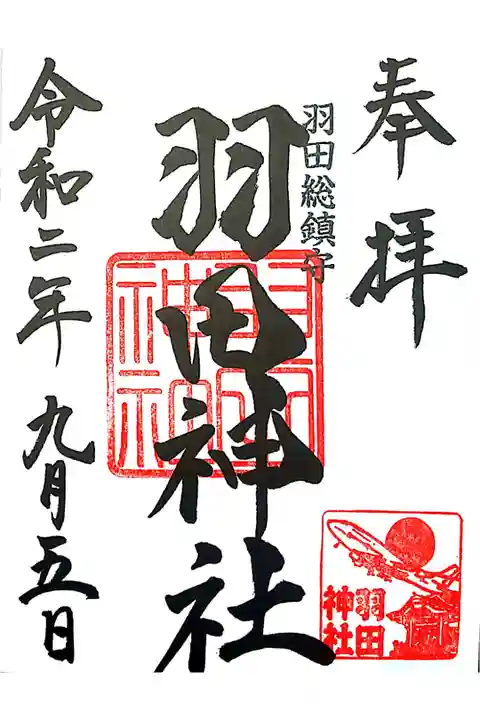 奉拝
羽田総鎮守
羽田神社
令和二年九月五日
羽田
神社
羽田
神社